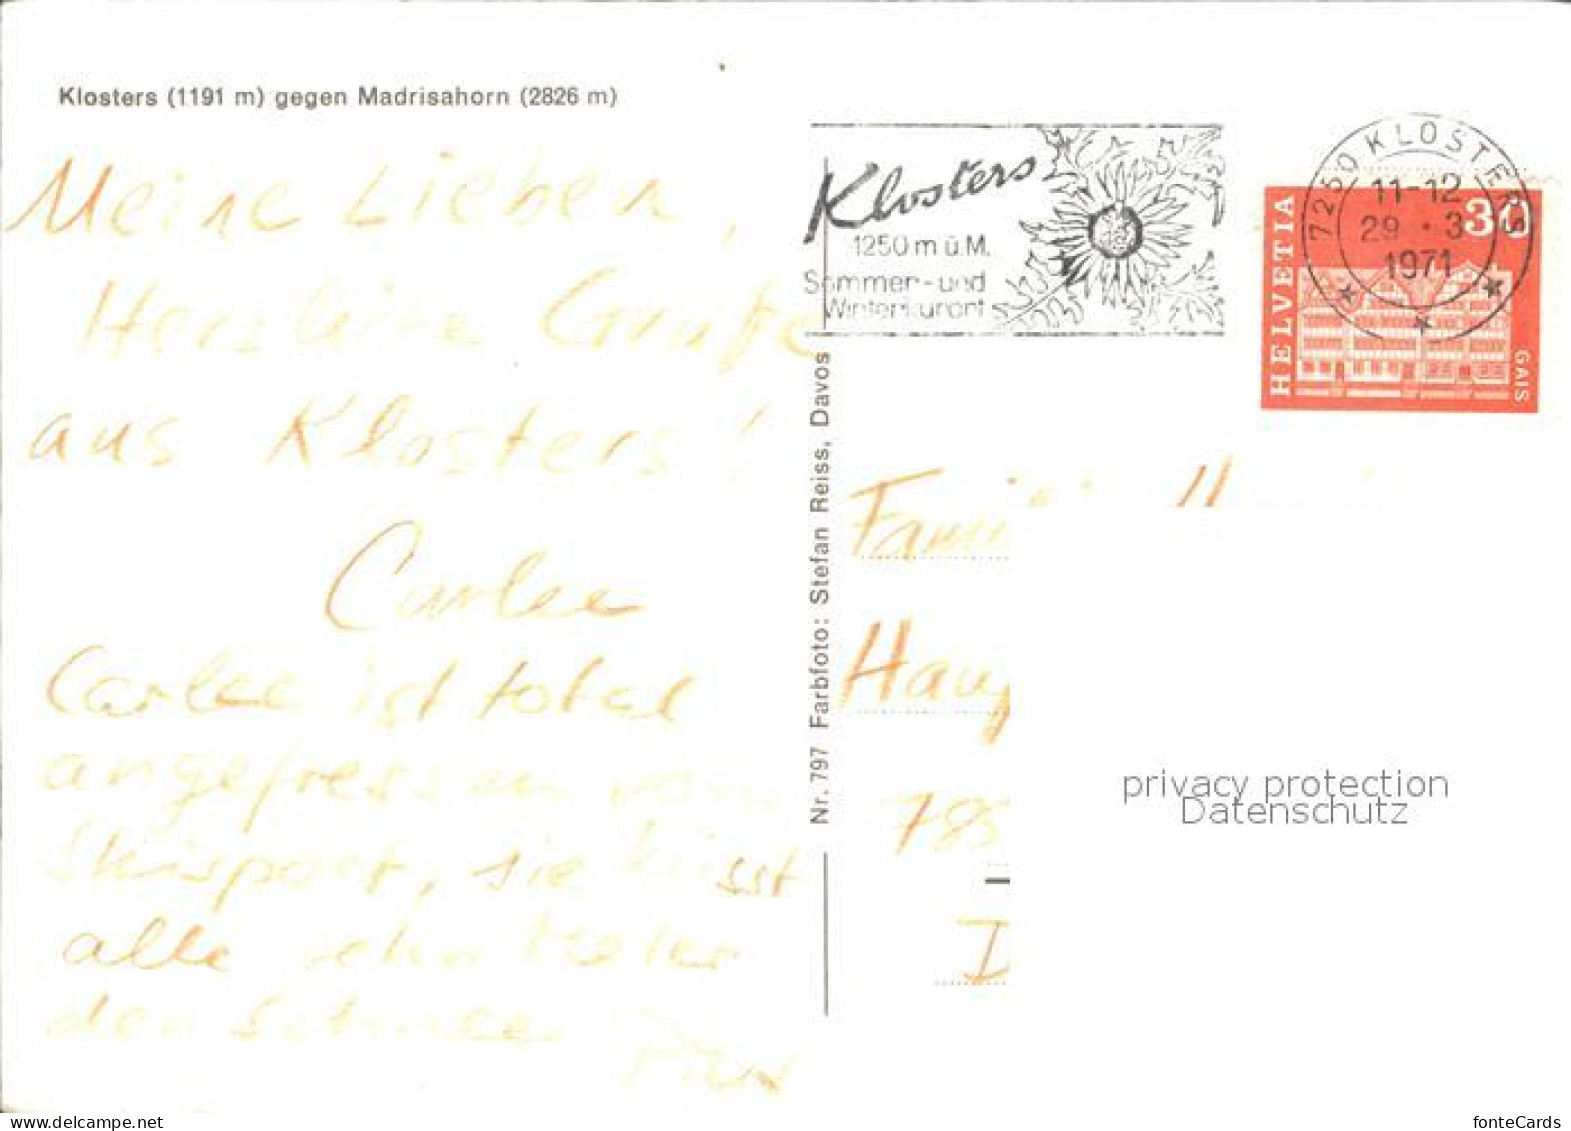 Klosters (1191 m) gegen Madrisahorn (2826 m)
Meine Lieben,
Herzliche Grüße
aus Klosters!
Carlee
Carlee ist total
angefressen vom
Skisport, sie küsst
alle zehn Meter
den Schnee
Nr. 797 Farbfoto: Stefan Reiss, Davos
Klosters
1250 m ü.M.
Sommer- und
Winterkurort
7250 KLOSTERS
11-12
29.3
1971
HELVETIA
30
GAIS
Famili
Haup
785
D
privacy protection
Datenschutz
fonteCards
www.delcampe.net